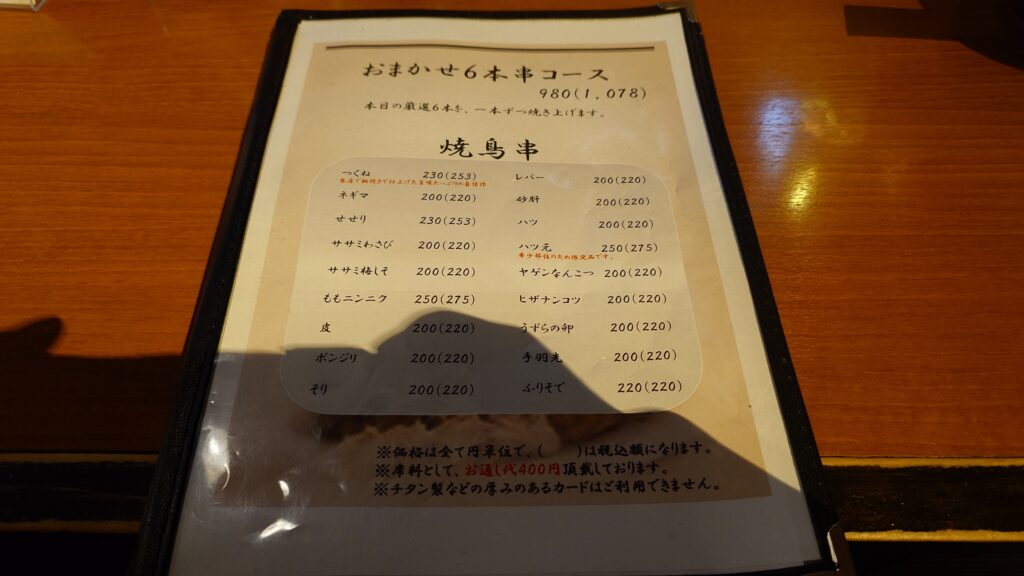 おまかせ6本串コース
980(1,078)
本日の厳選6本を、一本ずつ焼き上げます。
焼鳥串
つくね 230(253)
当店で粗挽きで仕上げた旨味たっぷりの自信作
ネギマ 200(220)
せせり 230(253)
ササミわさび 200(220)
ササミ梅しそ 200(220)
ももニンニク 250(275)
皮 200(220)
ボンジリ 200(220)
そり 200(220)
レバー 200(220)
砂肝 200(220)
ハツ 200(220)
ハツ元 250(275)
希少部位のため限定品です。
ヤゲンなんこつ 200(220)
ヒザナンコツ 200(220)
うずらの卵 200(220)
手羽先 200(220)
ふりそで 220(220)
※価格は全て円単位で、( )は税込額になります。
※席料として、お通し代400円頂戴しております。
※チタン製などの厚みのあるカードはご利用できません。